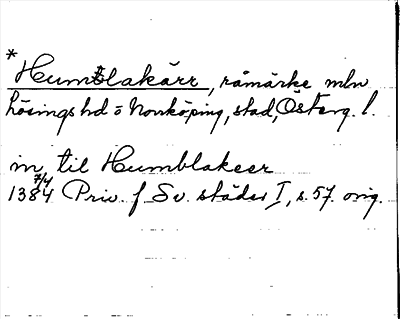 * Humblakärr, råmärke mln
Lösings hd o Norrköping, stad, Österg. l.
in til Humblakeer
1384 7/4 Priv. f Sv. städer I, s. 57. orig.